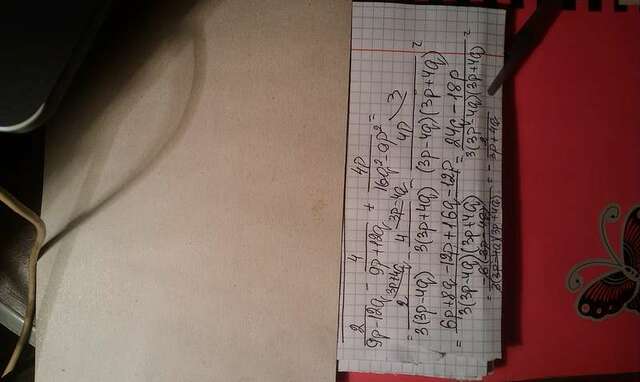 2/(9p-12q) - 4/(9p+12q) + 4p/(16q²-9p²) =
= 2/(3(3p-4q)) - 4/(3(3p+4q)) - 4p/((3p-4q)(3p+4q)) =
= (6p+8q-12p+16q-12p)/(3(3p-4q)(3p+4q)) = (24q-18p)/(3(3p-4q)(3p+4q)) =
= -6(3p-4q)/(3(3p-4q)(3p+4q)) = -2/(3p+4q)